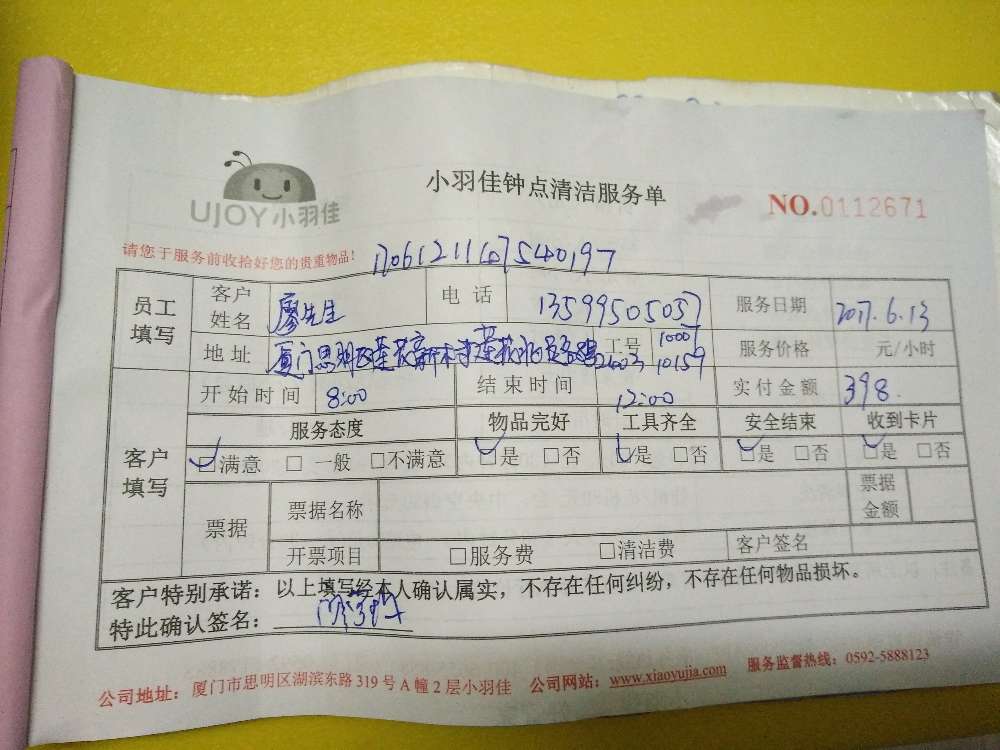 UJOY小羽佳
小羽佳钟点清洁服务单
NO.0112671
请您于服务前收拾好您的贵重物品!
员工填写 客户姓名 廖先生 电话 13599505057 服务日期 2017.6.13
地址 厦门思明区莲花 工号 10007 10159 服务价格 元/小时
客户填写 开始时间 8:00 结束时间 12:00 实付金额 398.
服务态度 物品完好 工具齐全 安全结束 收到卡片
□满意 □一般 □不满意 □是 □否 □是 □否 □是 □否 □是 □否
票据 票据名称 票据金额
开票项目 □服务费 □清洁费 客户签名
客户特别承诺：以上填写经本人确认属实，不存在任何纠纷，不存在任何物品损坏。
特此确认签名：
公司地址：厦门市思明区湖滨东路319号A幢2层小羽佳 公司网站：www.xiaoyujia.com 服务监督热线：0592-5888123